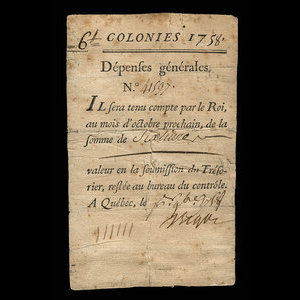 6# COLONIES 1758.
Dépenses générales,
N.º 41597.
IL sera tenu compte par le Roi,
au mois d'octobre prochain, de la
somme de Six livres
valeur en la soumission du Tréso-
rier, restée au bureau du contrôle.
A Québec, le